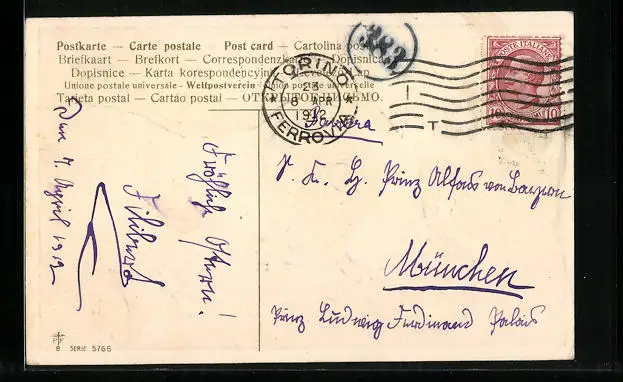 Postkarte — Carte postale — Post card — Cartolina postale
Briefkaart — Brefkort — Correspondenzkarte — Dopisnica
Dopisnice — Karta korespondencyjna — Levelező-Lap
Unione postale universale - Weltpostverein - Union postale universelle
Tarjeta postal — Cartão postal — ОТКРЫТОЕ ПИСЬМО.
383
TORINO
23
8 APR
1912
FERROVIA
T
POSTE ITALIANE
10 10
Baviera
S. K. H. Prinz Alfons von Bayern
München
Prinz Ludwig Ferdinand Palais
Fröhliche Ostern!
Filiberto
7. April 1912
PF
8 SERIE 5765